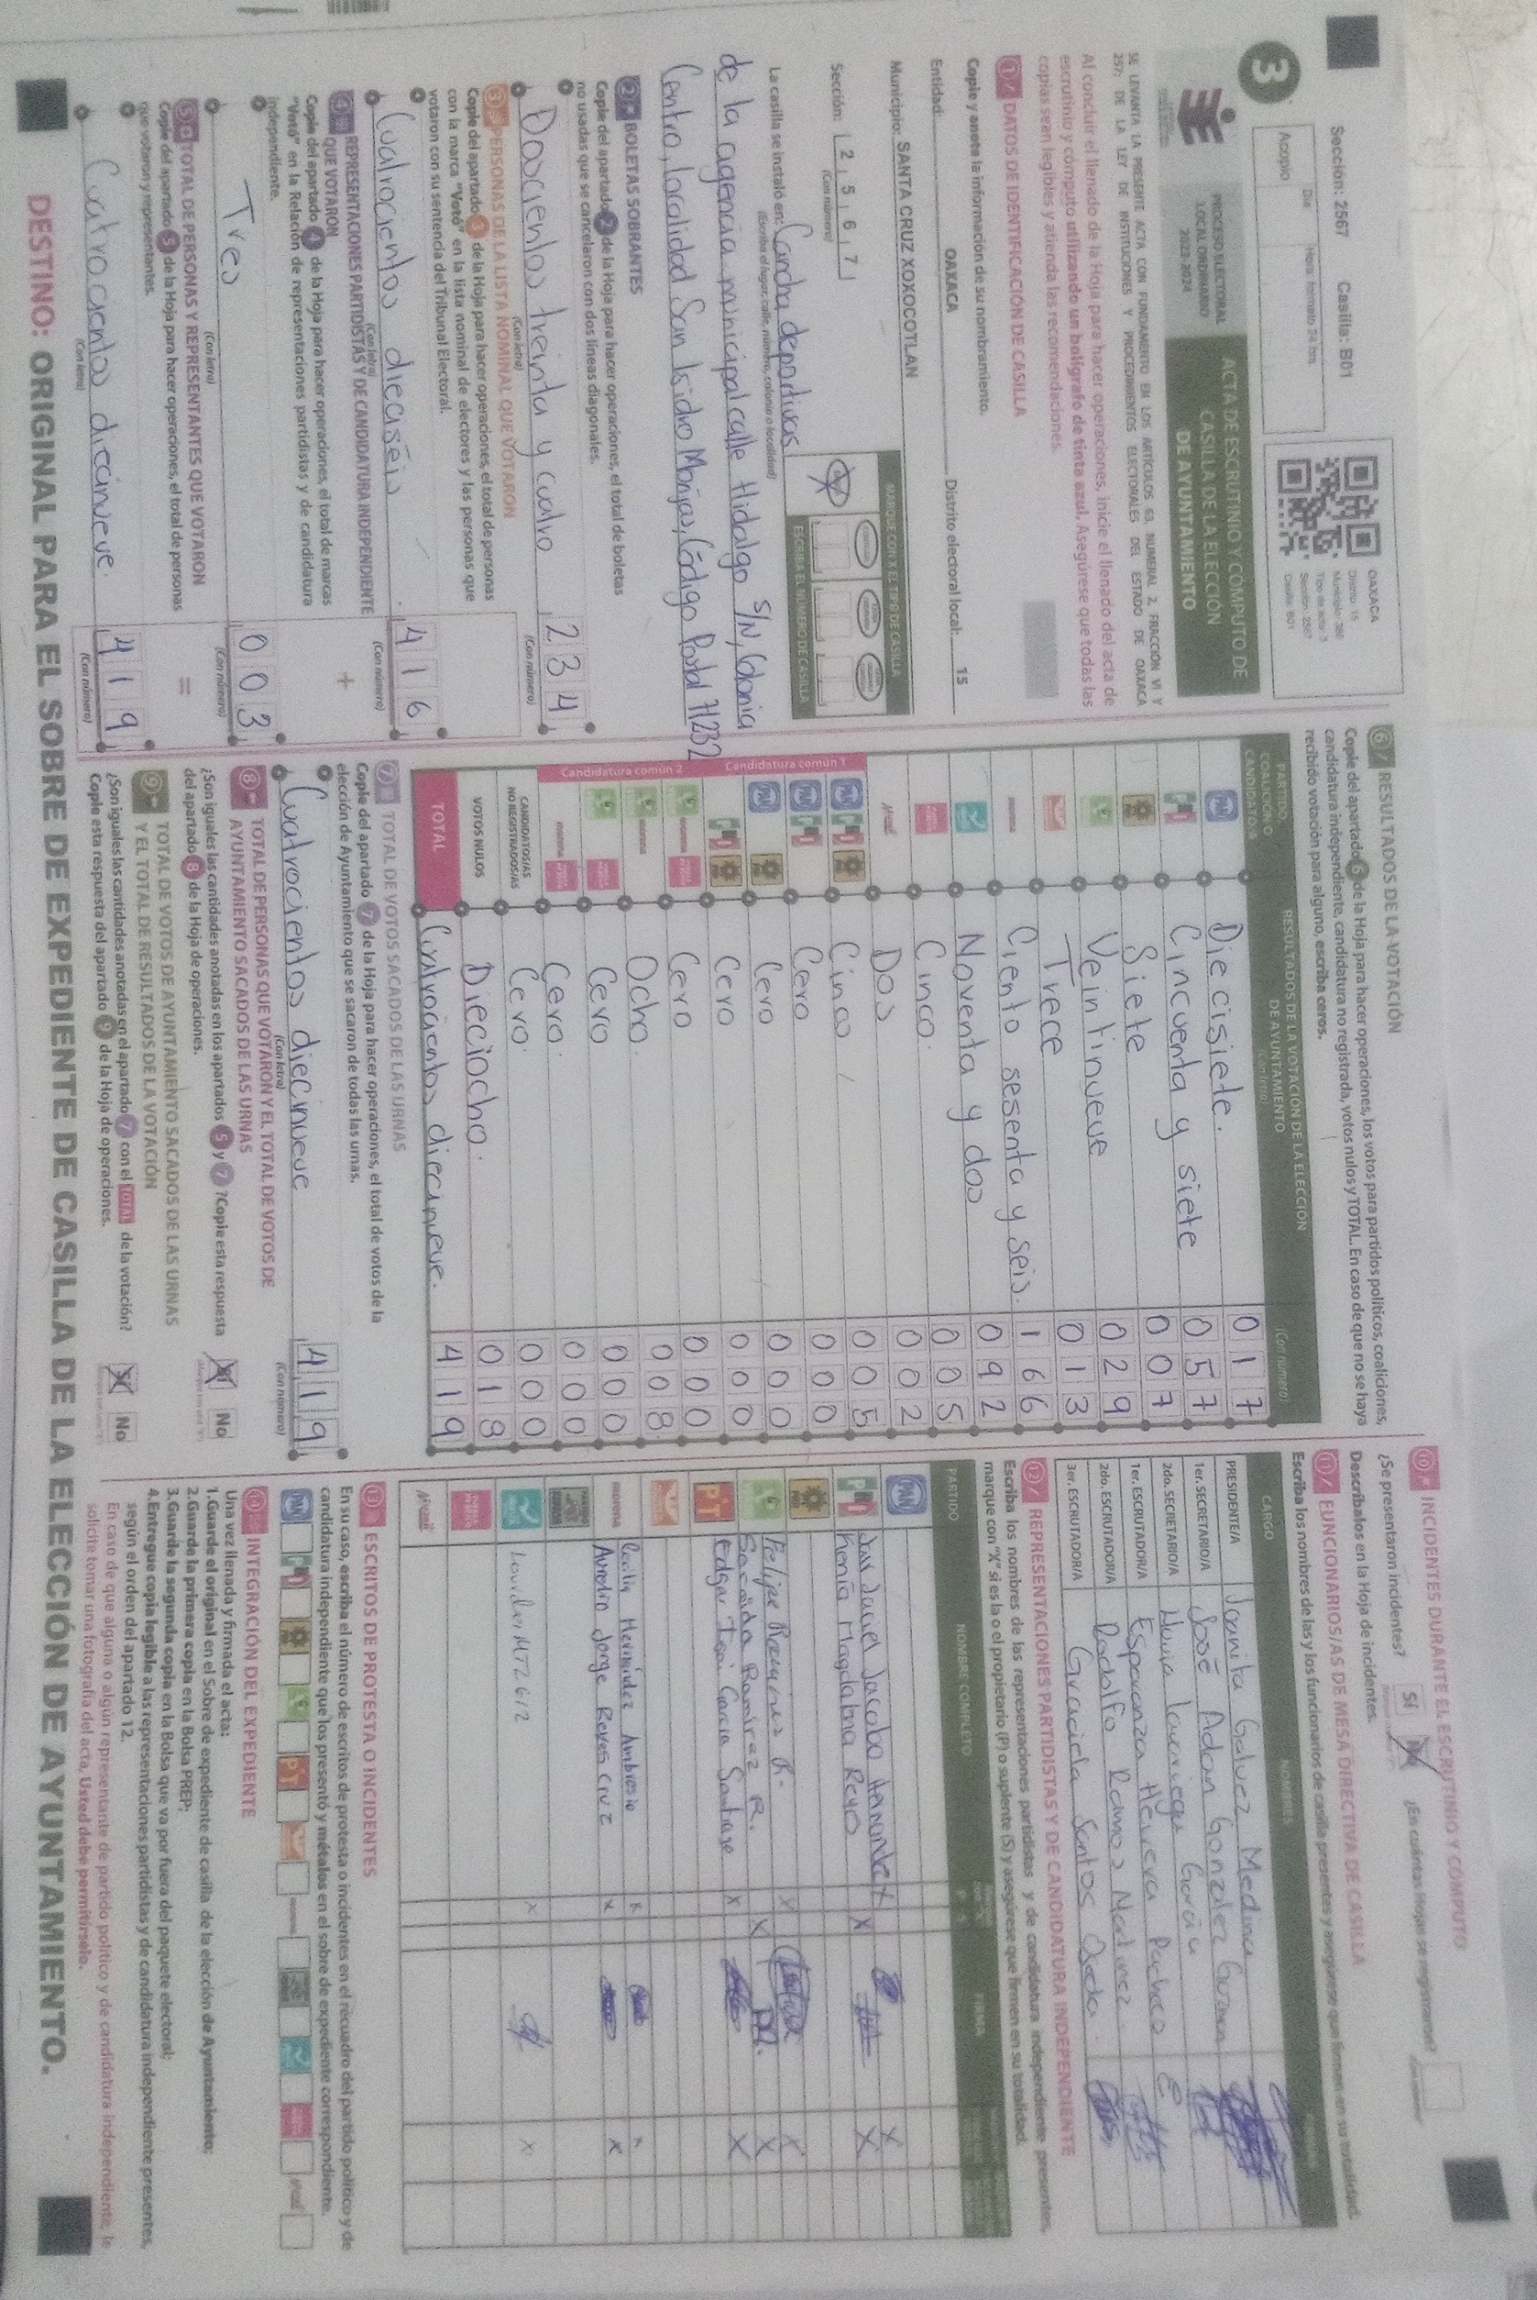 Sección: 2567 Casilla: B01
3
Acopio
Día
Hora: formato 24 hrs
OAXACA
Distrito: 15
Sección: 2567
Casilla: B01
PROCESO ELECTORAL
LOCAL ORDINARIO
2023-2024
ACTA DE ESCRUTINIO Y CÓMPUTO DE
CASILLA DE LA ELECCIÓN
DE AYUNTAMIENTO
SE LEVANTA LA PRESENTE ACTA CON FUNDAMENTO EN LOS ARTÍCULOS 63, NUMERAL 2, FRACCIÓN VI Y
257; DE LA LEY DE INSTITUCIONES Y PROCEDIMIENTOS ELECTORALES DEL ESTADO DE OAXACA
Al concluir el llenado de la Hoja para hacer operaciones, inicie el llenado del acta de
escrutinio y cómputo utilizando un bolígrafo de tinta azul. Asegúrese que todas las
copias sean legibles y atienda las recomendaciones.
1 DATOS DE IDENTIFICACIÓN DE CASILLA
Copie y anote la información de su nombramiento.
Entidad: OAXACA Distrito electoral local: 15
Municipio: SANTA CRUZ XOXOCOTLAN
Sección: 2 5 6 7
(Con número)
MARQUE CON X EL TIPO DE CASILLA
ESCRIBA EL NÚMERO DE CASILLA
La casilla se instaló en: Cancha deportivas
(Escriba el lugar, calle, número, colonia o localidad)
de la agencia municipal calle Hidalgo S/N, Colonia
Centro, localidad San Isidro Monjas, Código Postal 71232
2 BOLETAS SOBRANTES
Copie del apartado 2 de la Hoja para hacer operaciones, el total de boletas
no usadas que se cancelaron con dos líneas diagonales.
Doscientos treinta y cuatro 2 3 4
(Con letra) (Con número)
3 PERSONAS DE LA LISTA NOMINAL QUE VOTARON
Copie del apartado 3 de la Hoja para hacer operaciones, el total de personas
con la marca "Votó" en la lista nominal de electores y las personas que
votaron con su sentencia del Tribunal Electoral.
Cuatrocientos diecaséis 4 1 6
(Con letra) (Con número)
4 REPRESENTACIONES PARTIDISTAS Y DE CANDIDATURA INDEPENDIENTE
QUE VOTARON
+
Copie del apartado 4 de la Hoja para hacer operaciones, el total de marcas
"Votó" en la Relación de representaciones partidistas y de candidatura
independiente.
Tres 0 0 3
(Con letra) (Con número)
5 TOTAL DE PERSONAS Y REPRESENTANTES QUE VOTARON
=
Copie del apartado 5 de la Hoja para hacer operaciones, el total de personas
que votaron y representantes.
Cuatrocientos diecinueve. 4 1 9
(Con letra) (Con número)
6 RESULTADOS DE LA VOTACIÓN
Copie del apartado 6 de la Hoja para hacer operaciones, los votos para partidos políticos, coaliciones,
candidatura independiente, candidatura no registrada, votos nulos y TOTAL. En caso de que no se haya
recibido votación para alguno, escriba ceros.
PARTIDO,
COALICIÓN O
CANDIDATO/A
RESULTADOS DE LA VOTACIÓN DE LA ELECCIÓN
DE AYUNTAMIENTO
(Con letra) (Con número)
PAN Diecisiete. 0 1 7
PRI Cincuenta y siete 0 5 7
Siete 0 0 7
Veintinueve 0 2 9
Trece 0 1 3
morena Ciento sesenta y seis. 1 6 6
Noventa y dos 0 9 2
Cinco. 0 0 5
Dos 0 0 2
Candidatura común 1
PAN PRI Cinco 0 0 5
PAN PRI Cero 0 0 0
PAN Cero 0 0 0
PRI Cero 0 0 0
Candidatura común 2
morena Cero 0 0 0
morena Ocho. 0 0 8
Cero 0 0 0
morena Cero. 0 0 0
CANDIDATOS/AS
NO REGISTRADOS/AS Cero. 0 0 0
VOTOS NULOS Dieciocho. 0 1 8
TOTAL Cuatrocientos diecinueve. 4 1 9
7 TOTAL DE VOTOS SACADOS DE LAS URNAS
Copie del apartado 7 de la Hoja para hacer operaciones, el total de votos de la
elección de Ayuntamiento que se sacaron de todas las urnas.
Cuatrocientos diecinueve 4 1 9
(Con letra) (Con número)
8 TOTAL DE PERSONAS QUE VOTARON Y EL TOTAL DE VOTOS DE
AYUNTAMIENTO SACADOS DE LAS URNAS
¿Son iguales las cantidades anotadas en los apartados 5 y 7 ?Copie esta respuesta
del apartado 8 de la Hoja de operaciones.
No
9 TOTAL DE VOTOS DE AYUNTAMIENTO SACADOS DE LAS URNAS
Y EL TOTAL DE RESULTADOS DE LA VOTACIÓN
¿Son iguales las cantidades anotadas en el apartado 7 con el TOTAL de la votación?
Copie esta respuesta del apartado 9 de la Hoja de operaciones.
No
10 INCIDENTES DURANTE EL ESCRUTINIO Y CÓMPUTO
¿Se presentaron incidentes? Sí ¿En cuántas Hojas se registraron?
Descríbalos en la Hoja de incidentes.
11 FUNCIONARIOS/AS DE MESA DIRECTIVA DE CASILLA
Escriba los nombres de las y los funcionarios de casilla presentes y asegúrese que firmen en su totalidad.
CARGO NOMBRES
PRESIDENTE/A Joanita Galvez Medina
1er. SECRETARIO/A José Adan Gonzalez Guzman
2do. SECRETARIO/A
1er. ESCRUTADOR/A Esperanza Herrera Pacheco
2do. ESCRUTADOR/A Rodolfo Ramos Martinez
3er. ESCRUTADOR/A Graciela Santos
12 REPRESENTACIONES PARTIDISTAS Y DE CANDIDATURA INDEPENDIENTE
Escriba los nombres de las representaciones partidistas y de candidatura independiente presentes,
marque con "X" si es la o el propietario (P) o suplente (S) y asegúrese que firmen en su totalidad.
PARTIDO NOMBRE COMPLETO P S FIRMA
PAN Jacobo Hernandez X X
PRI Kenia Magdalena Reyo X X
Felipe X X
Ramírez R. X X
PT Edgar Garcia Santiago X X
morena Cecilia Hernández Ambrosio X X
Jorge Reyes Cruz X X
X X
13 ESCRITOS DE PROTESTA O INCIDENTES
En su caso, escriba el número de escritos de protesta o incidentes en el recuadro del partido político y de
candidatura independiente que los presentó y métalos en el sobre de expediente correspondiente.
PAN PRI PT morena
14 INTEGRACIÓN DEL EXPEDIENTE
Una vez llenada y firmada el acta:
1.Guarde el original en el Sobre de expediente de casilla de la elección de Ayuntamiento;
2.Guarde la primera copia en la Bolsa PREP;
3.Guarde la segunda copia en la Bolsa que va por fuera del paquete electoral;
4.Entregue copia legible a las representaciones partidistas y de candidatura independiente presentes,
según el orden del apartado 12.
En caso de que alguna o algún representante de partido político y de candidatura independiente, le
solicite tomar una fotografía del acta, Usted debe permitírselo.
DESTINO: ORIGINAL PARA EL SOBRE DE EXPEDIENTE DE CASILLA DE LA ELECCIÓN DE AYUNTAMIENTO.